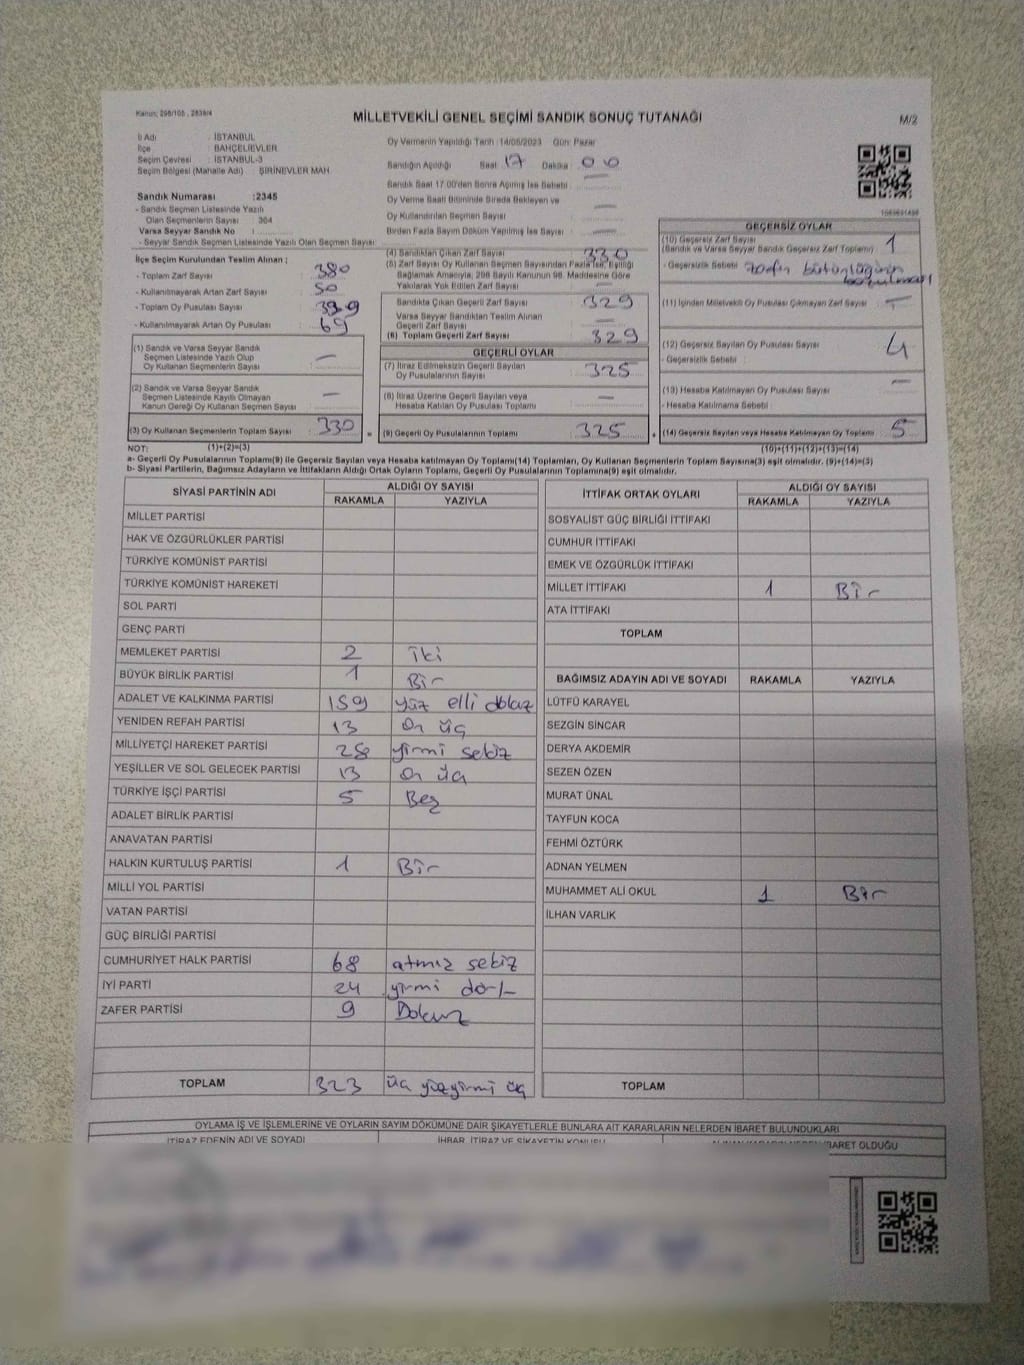 Kanun; 298/105 , 2839/4
MİLLETVEKİLİ GENEL SEÇİMİ SANDIK SONUÇ TUTANAĞI
M/2
İl Adı : İSTANBUL
İlçe : BAHÇELİEVLER
Seçim Çevresi : İSTANBUL-3
Seçim Bölgesi (Mahalle Adı) : ŞİRİNEVLER MAH
Sandık Numarası :2345
- Sandık Seçmen Listesinde Yazılı
Olan Seçmenlerin Sayısı : 384
Varsa Seyyar Sandık No :
- Seyyar Sandık Seçmen Listesinde Yazılı Olan Seçmen Sayısı
İlçe Seçim Kurulundan Teslim Alınan ;
- Toplam Zarf Sayısı : 380
- Kullanılmayarak Artan Zarf Sayısı : 50
- Toplam Oy Pusulası Sayısı :
- Kullanılmayarak Artan Oy Pusulası : 69
(1) Sandık ve Varsa Seyyar Sandık
Seçmen Listesinde Yazılı Olup
Oy Kullanan Seçmenlerin Sayısı : —
(2) Sandık ve Varsa Seyyar Sandık
Seçmen Listesinde Kayıtlı Olmayan
Kanun Gereği Oy Kullanan Seçmen Sayısı : —
(3) Oy Kullanan Seçmenlerin Toplam Sayısı : 330
(1)+(2)=(3)
Oy Vermenin Yapıldığı Tarih :14/05/2023 Gün: Pazar
Sandığın Açıldığı Saat : 17 Dakika : 00
Sandık Saat 17:00'den Sonra Açılmış İse Sebebi : —
Oy Verme Saati Bitiminde Sırada Bekleyen ve
Oy Kullandırılan Seçmen Sayısı : —
Birden Fazla Sayım Döküm Yapılmış İse Sayısı : —
(4) Sandıktan Çıkan Zarf Sayısı : 330
(5) Zarf Sayısı Oy Kullanan Seçmen Sayısından Fazla İse, Eşitliği
Sağlamak Amacıyla, 298 Sayılı Kanunun 98. Maddesine Göre
Yakılarak Yok Edilen Zarf Sayısı : —
Sandıkta Çıkan Geçerli Zarf Sayısı : 329
Varsa Seyyar Sandıktan Teslim Alınan
Geçerli Zarf Sayısı : —
(6) Toplam Geçerli Zarf Sayısı : 329
GEÇERLİ OYLAR
(7) İtiraz Edilmeksizin Geçerli Sayılan
Oy Pusulalarının Sayısı : 325
(8) İtiraz Üzerine Geçerli Sayılan veya
Hesaba Katılan Oy Pusulası Toplamı : —
= (9) Geçerli Oy Pusulalarının Toplamı : 325 +
GEÇERSİZ OYLAR
(10) Geçersiz Zarf Sayısı : 1
(Sandık ve Varsa Seyyar Sandık Geçersiz Zarf Toplamı)
- Geçersizlik Sebebi : zarfın bütünlüğünün
bozulması
(11) İçinden Milletvekili Oy Pusulası Çıkmayan Zarf Sayısı : —
(12) Geçersiz Sayılan Oy Pusulası Sayısı : 4
- Geçersizlik Sebebi :
(13) Hesaba Katılmayan Oy Pusulası Sayısı : —
- Hesaba Katılmama Sebebi :
(14) Geçersiz Sayılan veya Hesaba Katılmayan Oy Toplamı : 5
(10)+(11)+(12)+(13)=(14)
NOT:
a- Geçerli Oy Pusulalarının Toplamı(9) ile Geçersiz Sayılan veya Hesaba katılmayan Oy Toplamı(14) Toplamları, Oy Kullanan Seçmenlerin Toplam Sayısına(3) eşit olmalıdır. (9)+(14)=(3)
b- Siyasi Partilerin, Bağımsız Adayların ve İttifakların Aldığı Ortak Oyların Toplamı, Geçerli Oy Pusulalarının Toplamına(9) eşit olmalıdır.
SİYASİ PARTİNİN ADI ALDIĞI OY SAYISI
RAKAMLA YAZIYLA
MİLLET PARTİSİ
HAK VE ÖZGÜRLÜKLER PARTİSİ
TÜRKİYE KOMÜNİST PARTİSİ
TÜRKİYE KOMÜNİST HAREKETİ
SOL PARTİ
GENÇ PARTİ
MEMLEKET PARTİSİ 2 iki
BÜYÜK BİRLİK PARTİSİ 1 Bir
ADALET VE KALKINMA PARTİSİ 159 yüz elli dokuz
YENİDEN REFAH PARTİSİ 13 on üç
MİLLİYETÇİ HAREKET PARTİSİ 28 yirmi sekiz
YEŞİLLER VE SOL GELECEK PARTİSİ 13 on üç
TÜRKİYE İŞÇİ PARTİSİ 5 Beş
ADALET BİRLİK PARTİSİ
ANAVATAN PARTİSİ
HALKIN KURTULUŞ PARTİSİ 1 Bir
MİLLİ YOL PARTİSİ
VATAN PARTİSİ
GÜÇ BİRLİĞİ PARTİSİ
CUMHURİYET HALK PARTİSİ 68 atmız sekiz
İYİ PARTİ 24 yirmi dört
ZAFER PARTİSİ 9 Dokuz
TOPLAM 323 üç yüzyirmi üç
İTTİFAK ORTAK OYLARI ALDIĞI OY SAYISI
RAKAMLA YAZIYLA
SOSYALİST GÜÇ BİRLİĞİ İTTİFAKI
CUMHUR İTTİFAKI
EMEK VE ÖZGÜRLÜK İTTİFAKI
MİLLET İTTİFAKI 1 Bir
ATA İTTİFAKI
TOPLAM
BAĞIMSIZ ADAYIN ADI VE SOYADI RAKAMLA YAZIYLA
LÜTFÜ KARAYEL
SEZGİN SİNCAR
DERYA AKDEMİR
SEZEN ÖZEN
MURAT ÜNAL
TAYFUN KOCA
FEHMİ ÖZTÜRK
ADNAN YELMEN
MUHAMMET ALİ OKUL 1 Bir
İLHAN VARLIK
TOPLAM
OYLAMA İŞ VE İŞLEMLERİNE VE OYLARIN SAYIM DÖKÜMÜNE DAİR ŞİKAYETLERLE BUNLARA AİT KARARLARIN NELERDEN İBARET BULUNDUKLARI
İTİRAZ EDENİN ADI VE SOYADI İHBAR, İTİRAZ VE ŞİKAYETİN KONUSU İBARET OLDUĞU